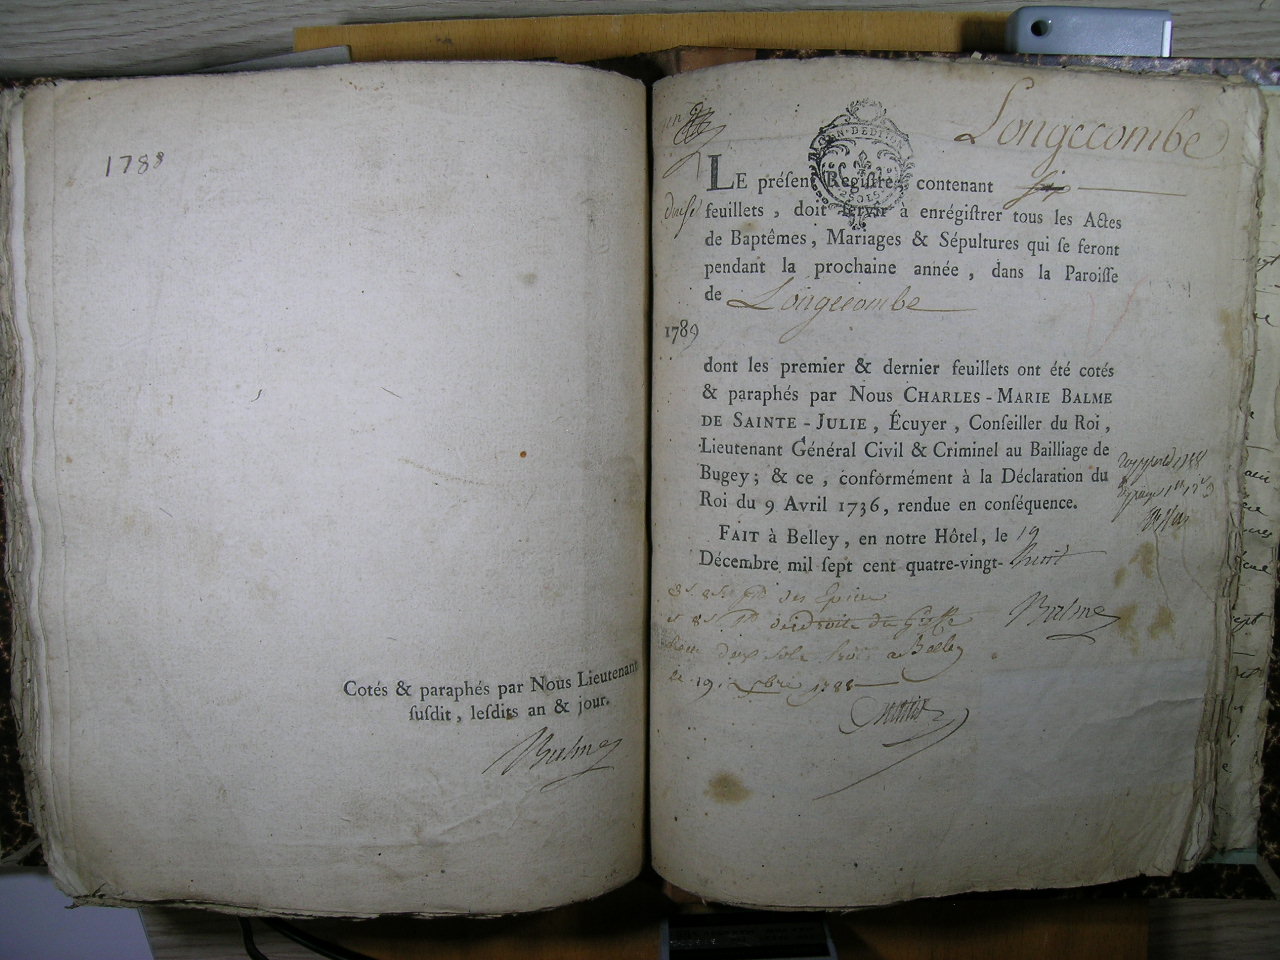 1788
Cotés & paraphés par Nous Lieutenant
ſuſdit, leſdits an & jour.
Balme
Longecombe
GEN. DE DIJON
2 SOLS
LE préſent Regiſtre, contenant ſix
feuillets, doit ſervir à enrégiſtrer tous les Actes
de Baptêmes, Mariages & Sépultures qui ſe feront
pendant la prochaine année, dans la Paroiſſe
de Longecombe
1789
dont les premier & dernier feuillets ont été cotés
& paraphés par Nous CHARLES-MARIE BALME
DE SAINTE-JULIE, Écuyer, Conſeiller du Roi,
Lieutenant Général Civil & Criminel au Bailliage de
Bugey; & ce, conformément à la Déclaration du
Roi du 9 Avril 1736, rendue en conſéquence.
FAIT à Belley, en notre Hôtel, le 19
Décembre mil ſept cent quatre-vingt-huit
Balme
deux sols a Belley
le 19 1788